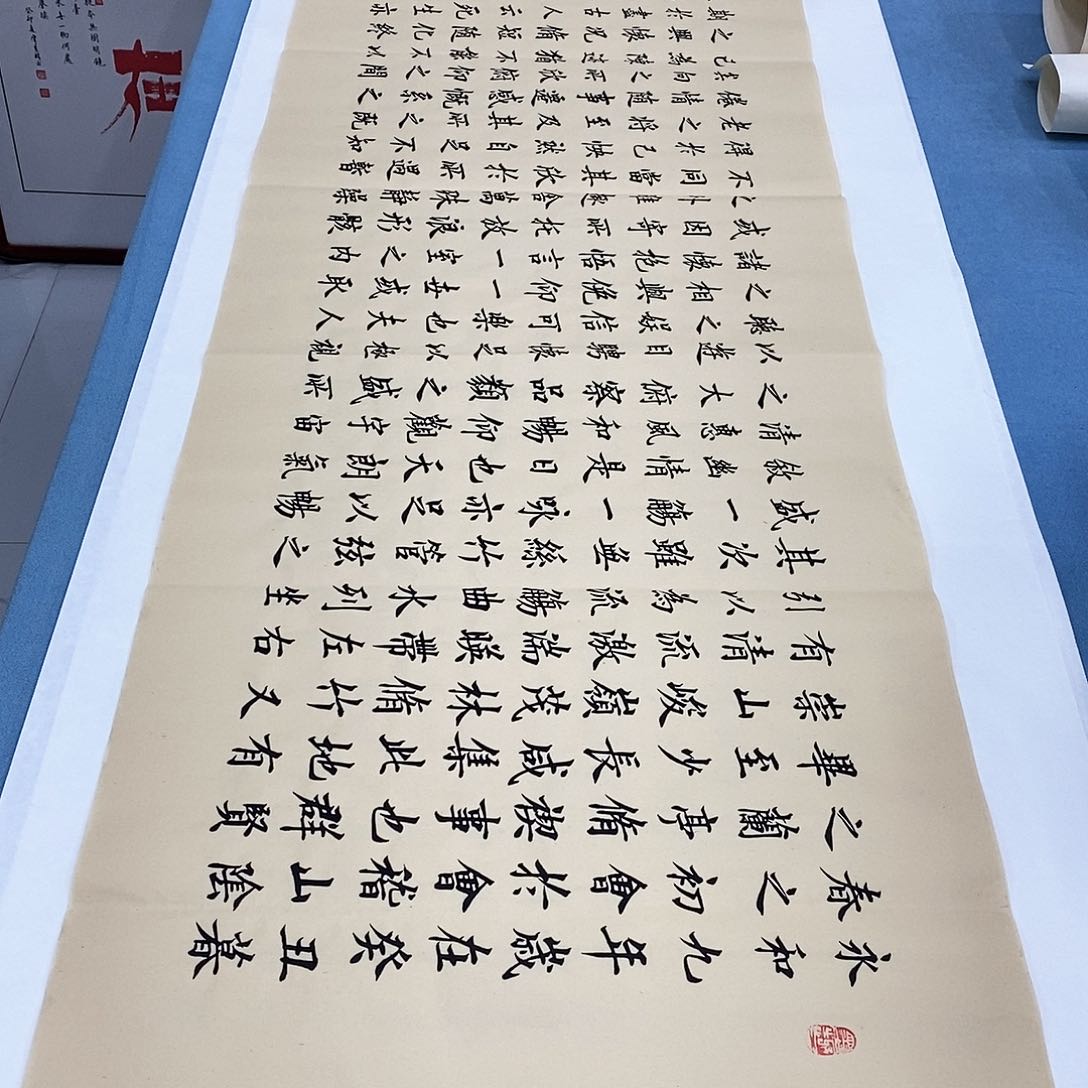 永和九年歲在癸丑暮
春之初會於會稽山陰
之蘭亭脩禊事也群賢
畢至少長咸集此地有
崇山峻嶺茂林脩竹又
有清流激湍暎帶左右
引以為流觴曲水列坐
其次雖無絲竹管弦之
盛一觴一詠亦足以暢
敘幽情是日也天朗氣
清惠風和暢仰觀宇宙
之大俯察品類之盛所
以遊目騁懷足以極視
聽之娛信可樂也夫人
之相與俯仰一世或取
諸懷抱悟言一室之內
或因寄所託放浪形骸
之外雖趣舍萬殊靜躁
不同當其欣於所遇暫
得於己怏然自足不知
老之將至及其所之既
倦情隨事遷感慨係之
矣向之所欣俛仰之間
已為陳迹猶不能不以
之興懷況脩短隨化終
期於盡古人云死生亦